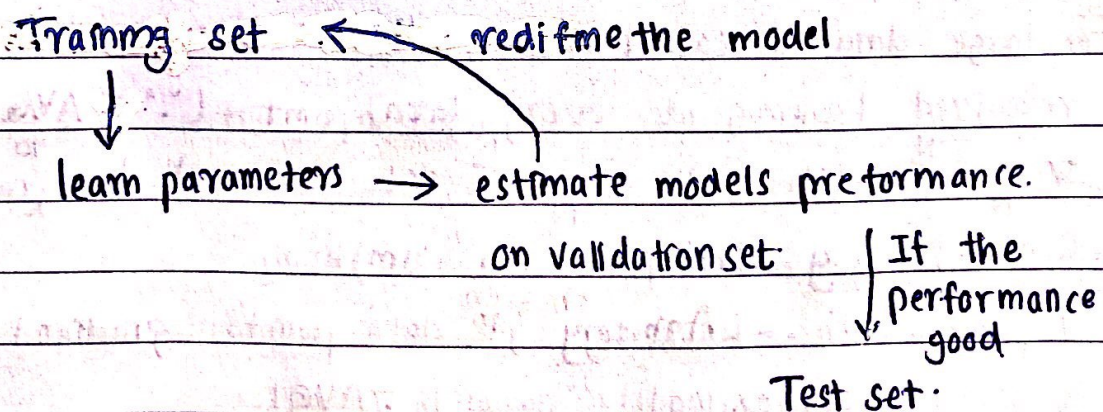 Training set redifine the model
learn parameters → estimate models preformance.
on validation set. If the
performance
good
Test set.